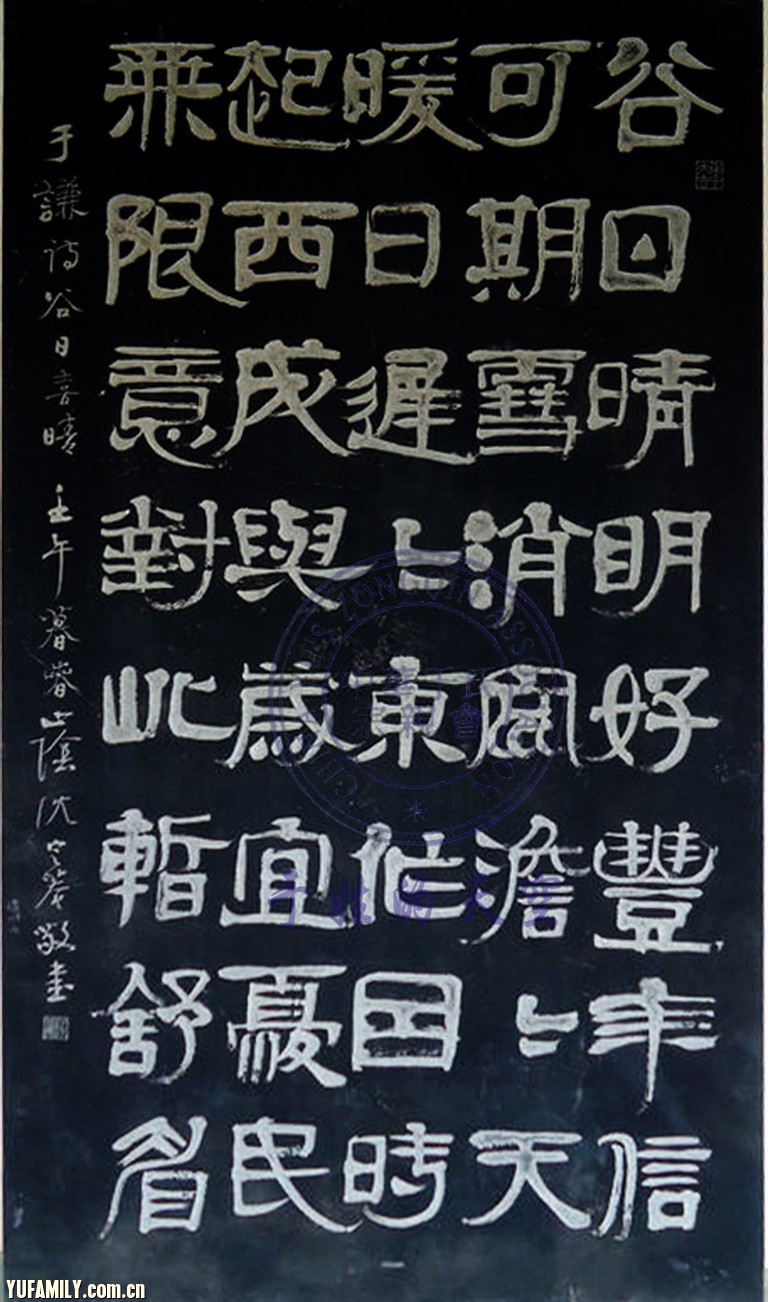 谷日晴明好豐年信
可期雪消寒澹〻天
暖日遲〻東作因時
起西成與歲宜憂民
無限意對此暫舒眉
于謙詩谷日喜晴 壬午暮春山陰沈定庵敬書
YUFAMILY.com.cn